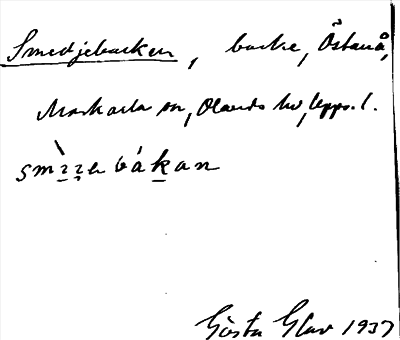 Smedjebacken, backe, Östanå,
Morkarla sn, Olands hd, Upps. l.
Gösta Glav 1937